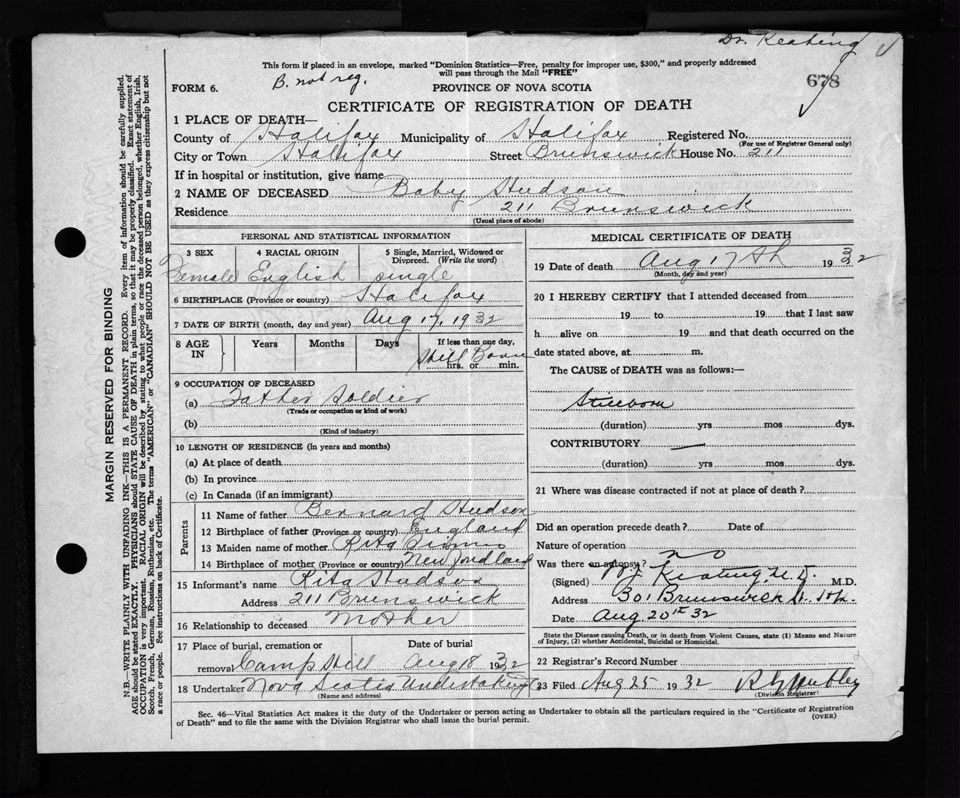 Dr. Keating
This form if placed in an envelope, marked "Dominion Statistics—Free, penalty for improper use, $300," and properly addressed
will pass through the Mail "FREE"
678
FORM 6.
B. not reg.
PROVINCE OF NOVA SCOTIA
CERTIFICATE OF REGISTRATION OF DEATH
1 PLACE OF DEATH—
County of Halifax Municipality of Halifax Registered No.
(For use of Registrar General only)
City or Town Halifax Street Brunswick House No. 211
If in hospital or institution, give name
2 NAME OF DECEASED Baby Hudson
Residence 211 Brunswick
(Usual place of abode)
PERSONAL AND STATISTICAL INFORMATION
3 SEX 4 RACIAL ORIGIN 5 Single, Married, Widowed or Divorced. (Write the word)
Female English single
6 BIRTHPLACE (Province or country) Halifax
7 DATE OF BIRTH (month, day and year) Aug 17, 1932
8 AGE IN Years Months Days If less than one day,
Still Born
hrs. or min.
9 OCCUPATION OF DECEASED
(a) Father Soldier
(Trade or occupation or kind of work)
(b)
(Kind of industry)
10 LENGTH OF RESIDENCE (in years and months)
(a) At place of death
(b) In province
(c) In Canada (if an immigrant)
Parents
11 Name of father Bernard Hudson
12 Birthplace of father (Province or country) England
13 Maiden name of mother Rita
14 Birthplace of mother (Province or Country) Newfoundland
15 Informant's name Rita Hudson
Address 211 Brunswick
16 Relationship to deceased Mother
17 Place of burial, cremation or removal Camp Hill Date of burial Aug 18 1932
18 Undertaker Nova Scotia Undertaking
(Name and address)
MEDICAL CERTIFICATE OF DEATH
19 Date of death Aug 17th 1932
(Month, day and year)
20 I HEREBY CERTIFY that I attended deceased from
19 to 19 that I last saw
h alive on 19 and that death occurred on the
date stated above, at m.
The CAUSE of DEATH was as follows:—
Stillborn
(duration) yrs mos dys.
CONTRIBUTORY
(duration) yrs mos dys.
21 Where was disease contracted if not at place of death?
Did an operation precede death? Date of
Nature of operation
Was there an autopsy? no
(Signed) Keating M.D. M.D.
Address 301 Brunswick St.
Date Aug 20th 32
State the Disease causing Death, or in death from Violent Causes, state (1) Means and Nature
of Injury, (2) whether Accidental, Suicidal or Homicidal.
22 Registrar's Record Number
23 Filed Aug 25 1932
(Division Registrar)
Sec. 46—Vital Statistics Act makes it the duty of the Undertaker or person acting as Undertaker to obtain all the particulars required in the "Certificate of Registration
of Death" and to file the same with the Division Registrar who shall issue the burial permit.
(OVER)
MARGIN RESERVED FOR BINDING
N.B.—WRITE PLAINLY WITH UNFADING INK—THIS IS A PERMANENT RECORD. Every item of information should be carefully supplied.
AGE should be stated EXACTLY. PHYSICIANS should STATE CAUSE OF DEATH in plain terms, so that it may be properly classified. Exact statement of
OCCUPATION is very important. RACIAL ORIGIN will be described by stating to what people or race the deceased person belonged, whether English, Irish,
Scotch, French, German, Russian, Ruthenian, etc. The terms "AMERICAN" or "CANADIAN" SHOULD NOT BE USED as they express citizenship but not
a race or people. See instructions on back of Certificate.